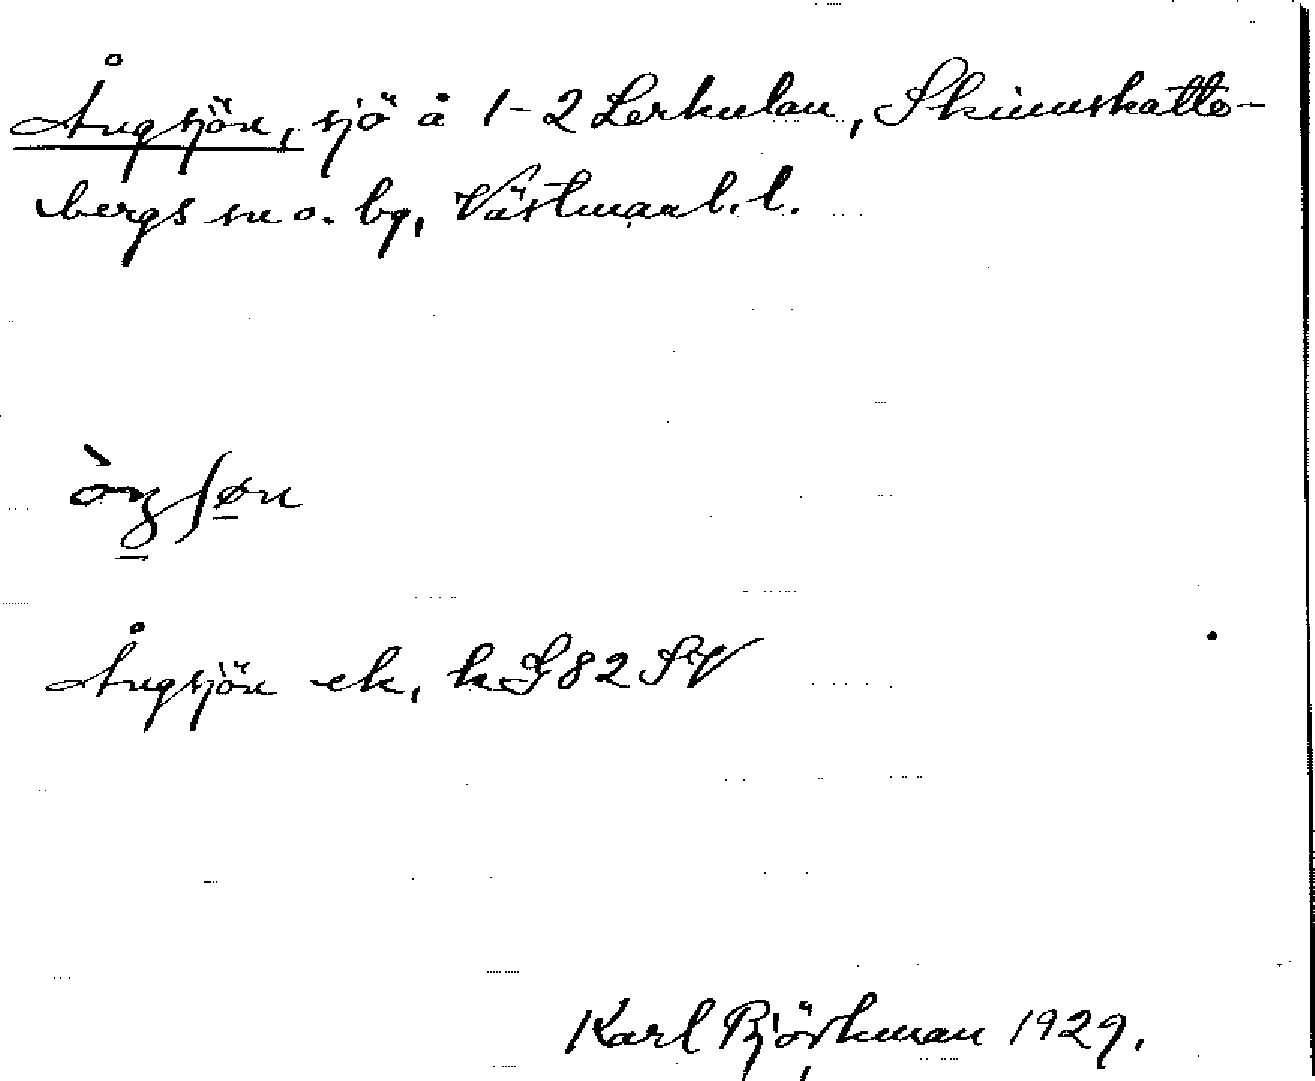 Ångsjön, sjö å 1-2 Lerkulan, Skinnskatte-
bergs sn o. bg, Västmanl. l.
Ångsjön ek, k G 82 SV
Karl Björkman 1929.